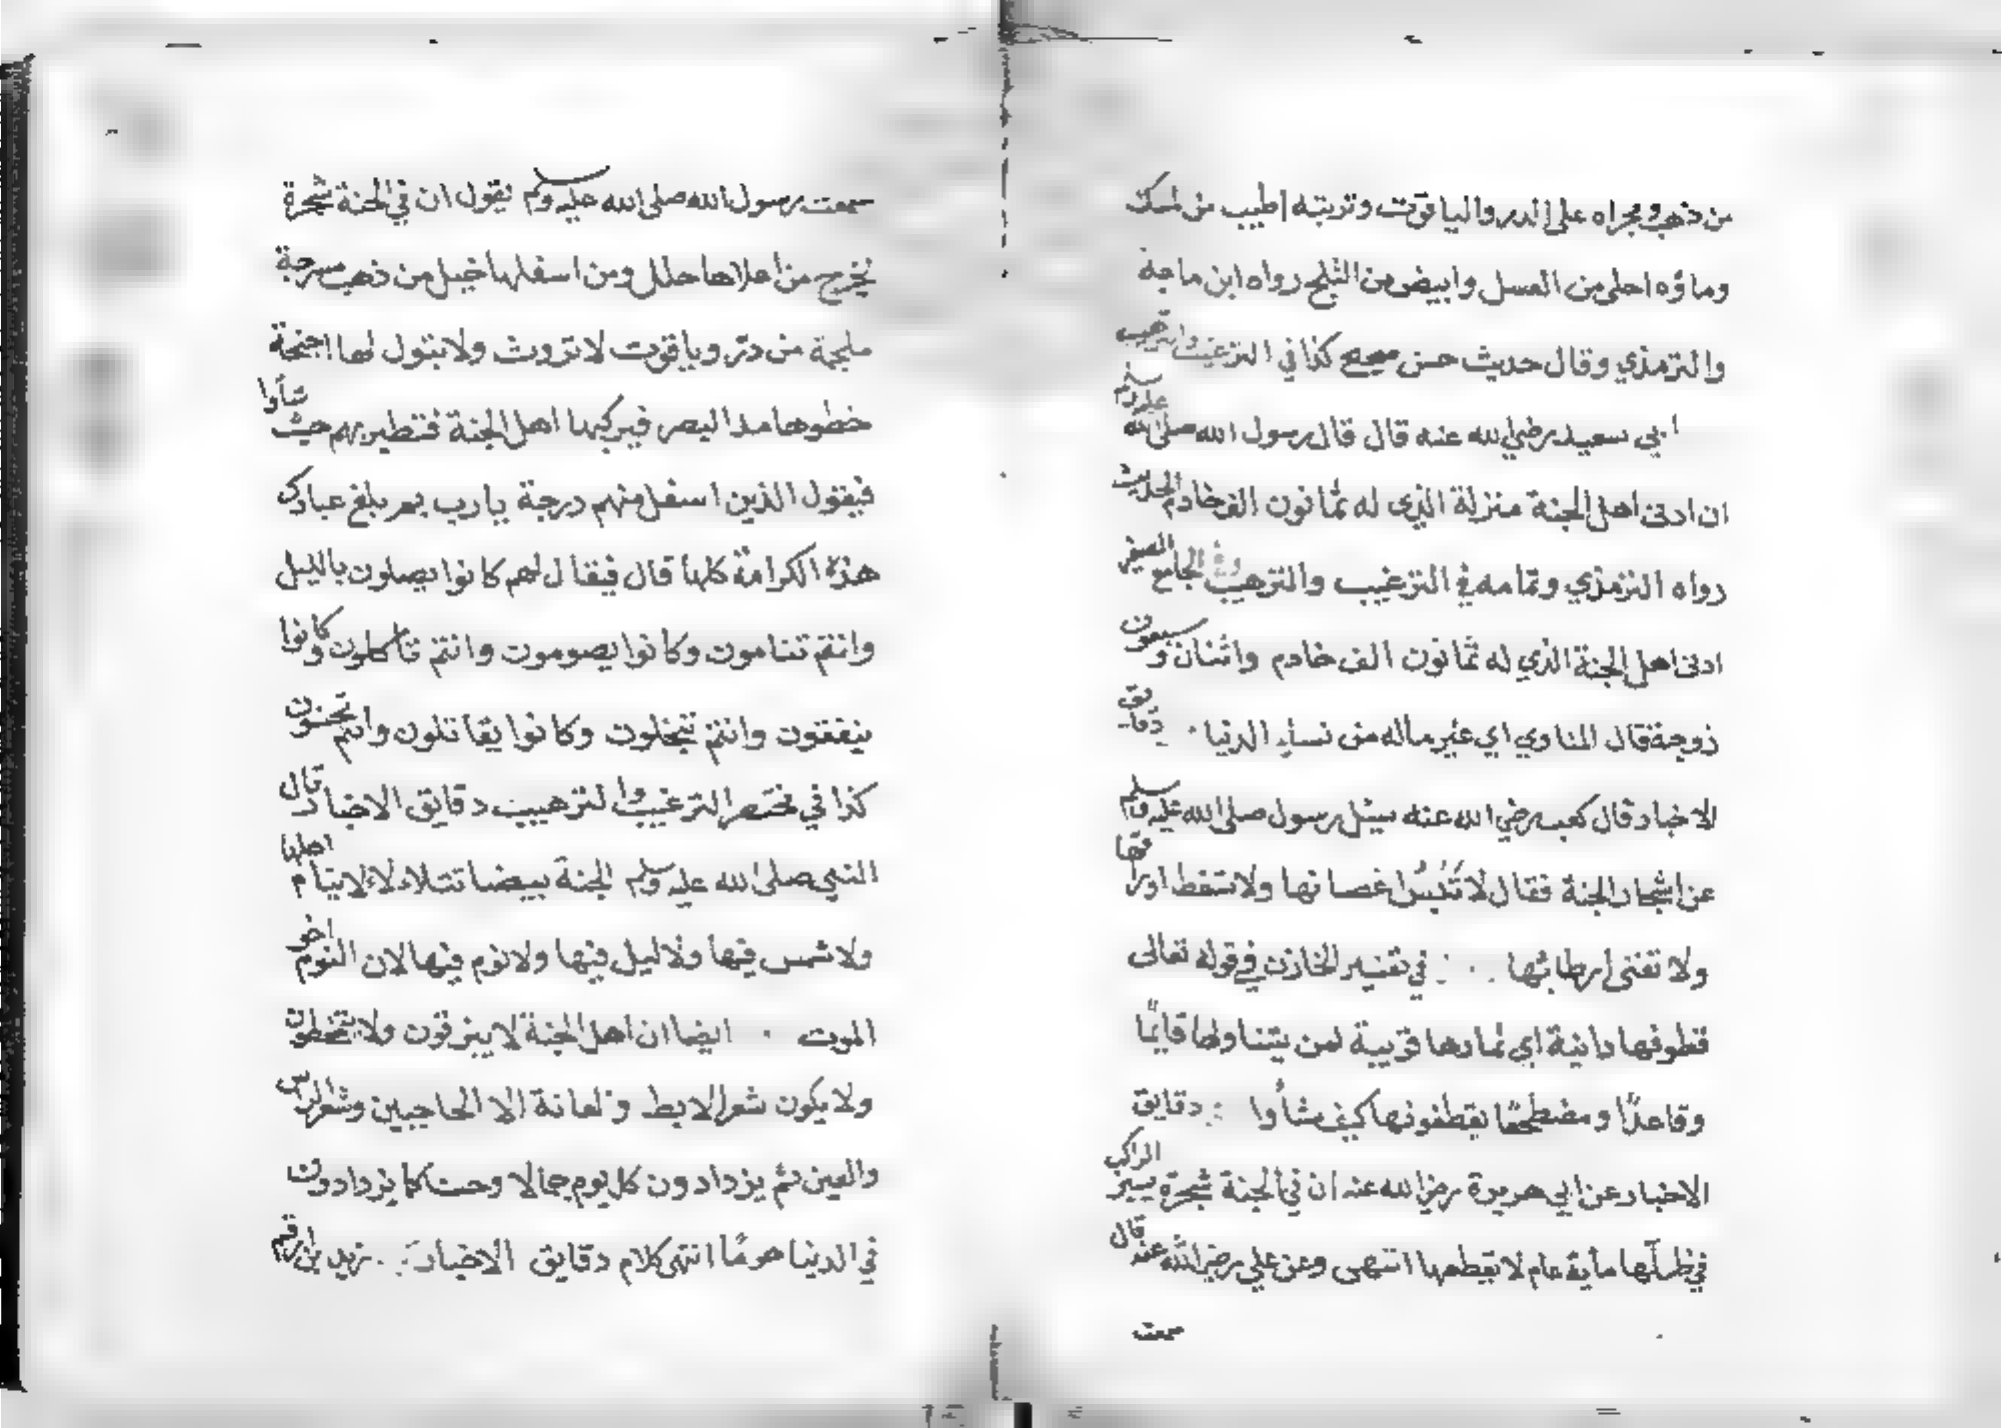 من ذهب ومجراه على الدر والياقوت وتربته اطيب من المسك
وماؤه احلى من العسل وابيض من الثلج رواه ابن ماجة
والترمذي وقال حديث حسن صحيح كذا في الترغيب والترهيب
ابي سعيد رضي الله عنه قال قال رسول الله صلى الله عليه وسلم
ان ادنى اهل الجنة منزلة الذي له ثمانون الف خادم الحديث
رواه الترمذي وتمامه في الترغيب والترهيب وفي الجامع الصغير
ادنى اهل الجنة الذي له ثمانون الف خادم واثنان وسبعون
زوجة قال المناوي اي غير ماله من نساء الدنيا دقايق
الاخبار قال كعب رضي الله عنه سئل رسول صلى الله عليه وسلم
عن اشجار الجنة فقال لا تَيْبَسُ اغصانها ولا تسقط اوراقها
ولا تفنى ارطابها في تفسير الخازن في قوله تعالى
قطوفها دانية اي ثمارها قريبة لمن يتناولها قايمًا
وقاعدًا ومضطجعًا يقطفونها كيف شاؤا دقايق
الاخبار عن ابي هريرة رضي الله عنه ان في الجنة شجرة يسير الراكب
في ظلّها ماية عام لا يقطعها انتهى وعن علي رضي الله عنه قال
سمعت
سمعت رسول الله صلى الله عليه وسلم يقول ان في الجنة شجرة
يخرج من اعلاها حلل ومن اسفلها خيل من ذهب مسرجة
ملجمة من درّ وياقوت لا تروث ولا تبول لها اجنحة
خطوها مد البصر فيركبها اهل الجنة فتطير بهم حيث شاؤا
فيقول الذين اسفل منهم درجة يا رب بم بلغ عبادك
هذه الكرامة كلها قال فيقال لهم كانوا يصلون بالليل
وانتم تنامون وكانوا يصومون وانتم تأكلون وكانوا
ينفقون وانتم تبخلون وكانوا يقاتلون وانتم تجبنون
كذا في مختصر الترغيب والترهيب دقايق الاخبار قال
النبي صلى الله عليه وسلم الجنة بيضا تتلاءلاء لا ينام اهلها
ولا شمس فيها ولا ليل فيها ولا نوم فيها لان النوم اخو
الموت ايضا ان اهل الجنة لا يبزقون ولا يتمخطون
ولا يكون شعر الابط والعانة الا الحاجبين وشعر الراس
والعين ثم يزدادون كل يوم جمالا وحسنا كما يزدادون
في الدنيا هرمًا انتهى كلام دقايق الاخبار زيد بن ارقم